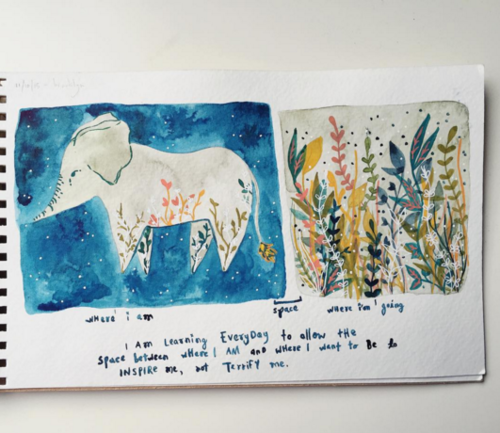 where i am
space
where i'm going
I AM LEARNING EVERYDAY to allow THE
SPACE between WHERE I AM and WHERE I want to BE to
INSPIRE me, not TERRIFY me.